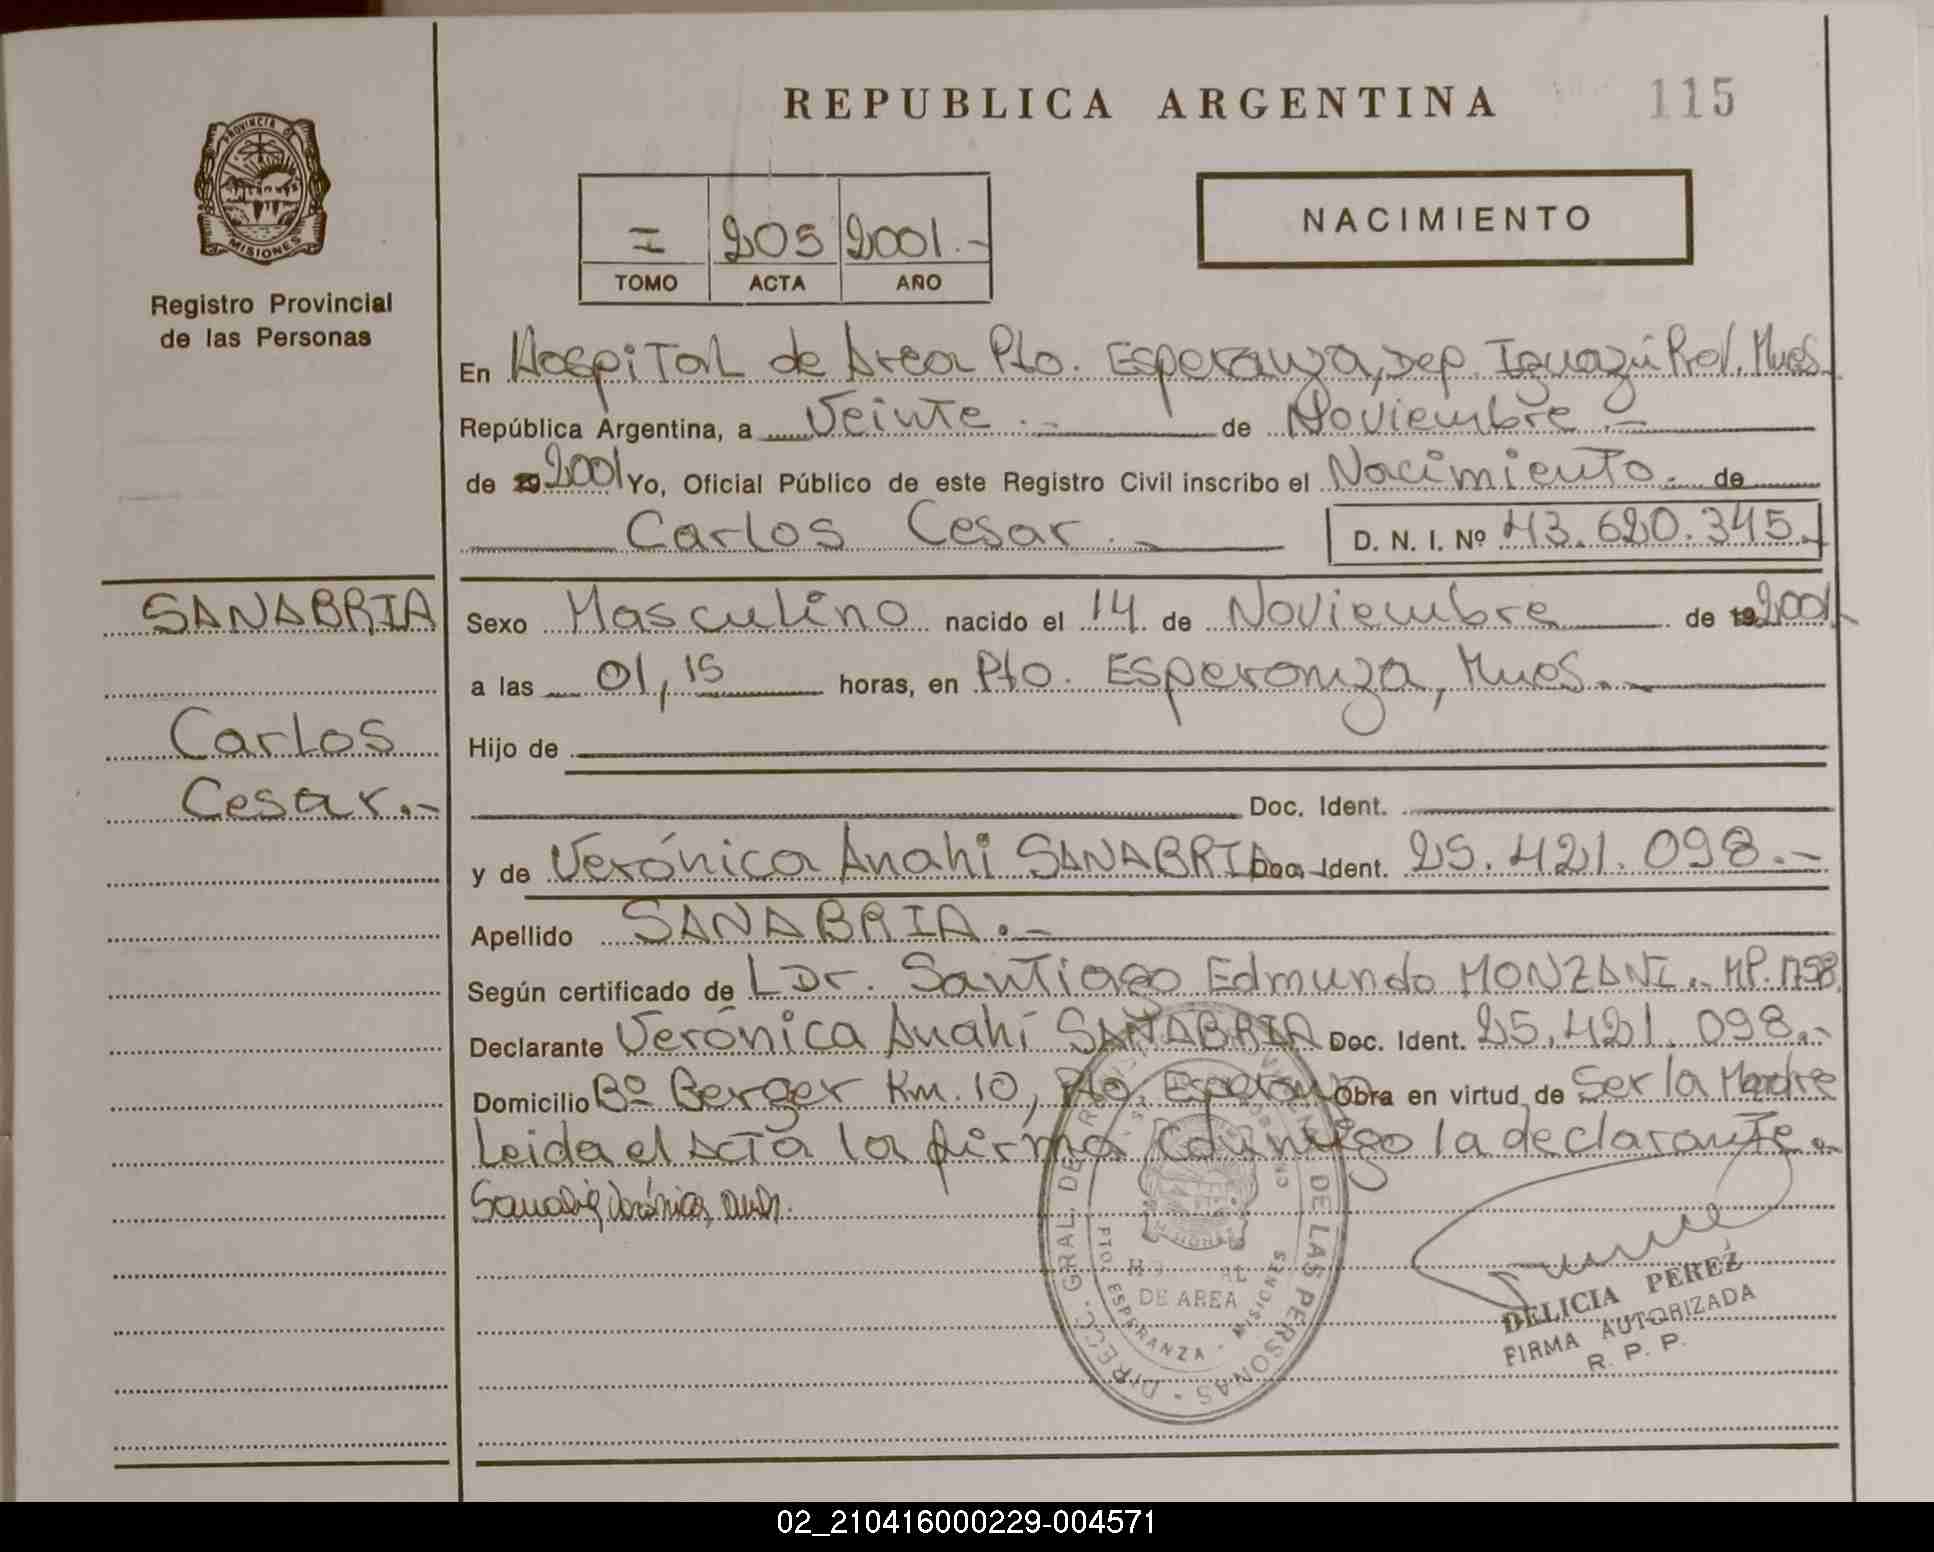 REPUBLICA ARGENTINA
115
PROVINCIA DE
MISIONES
Registro Provincial
de las Personas
I 205 2001.-
TOMO ACTA AÑO
NACIMIENTO
En Hospital de Area Pto. Esperanza, Dep. Iguazú Prov. Mnes.
República Argentina, a Veinte.- de Noviembre.-
de 2001 Yo, Oficial Público de este Registro Civil inscribo el Nacimiento.- de
Carlos Cesar.- D. N. I. Nº 43.620.345.-
SANABRIA
Carlos
Cesar.-
Sexo Masculino nacido el 14 de Noviembre de 2001.-
a las 01,15 horas, en Pto. Esperanza, Mnes.-
Hijo de
Doc. Ident.
y de Verónica Anahi SANABRIA Doc. Ident. 25.421.098.-
Apellido SANABRIA.-
Según certificado de L Dr. Santiago Edmundo MONZANI.- MP.1758
Declarante Verónica Anahí SANABRIA Doc. Ident. 25.421.098.-
Domicilio Bº Berger Km. 10, Pto. Esperanza Obra en virtud de Ser la Madre
Leida el Acta la firma conmigo la declarante.-
Sanabria Verónica Anahi.
DIRECC. GRAL. DE DE LAS PERSONAS
DE AREA
PTO ESPERANZA - MISIONES
DELICIA PEREZ
FIRMA AUTORIZADA
R. P. P.
02_210416000229-004571